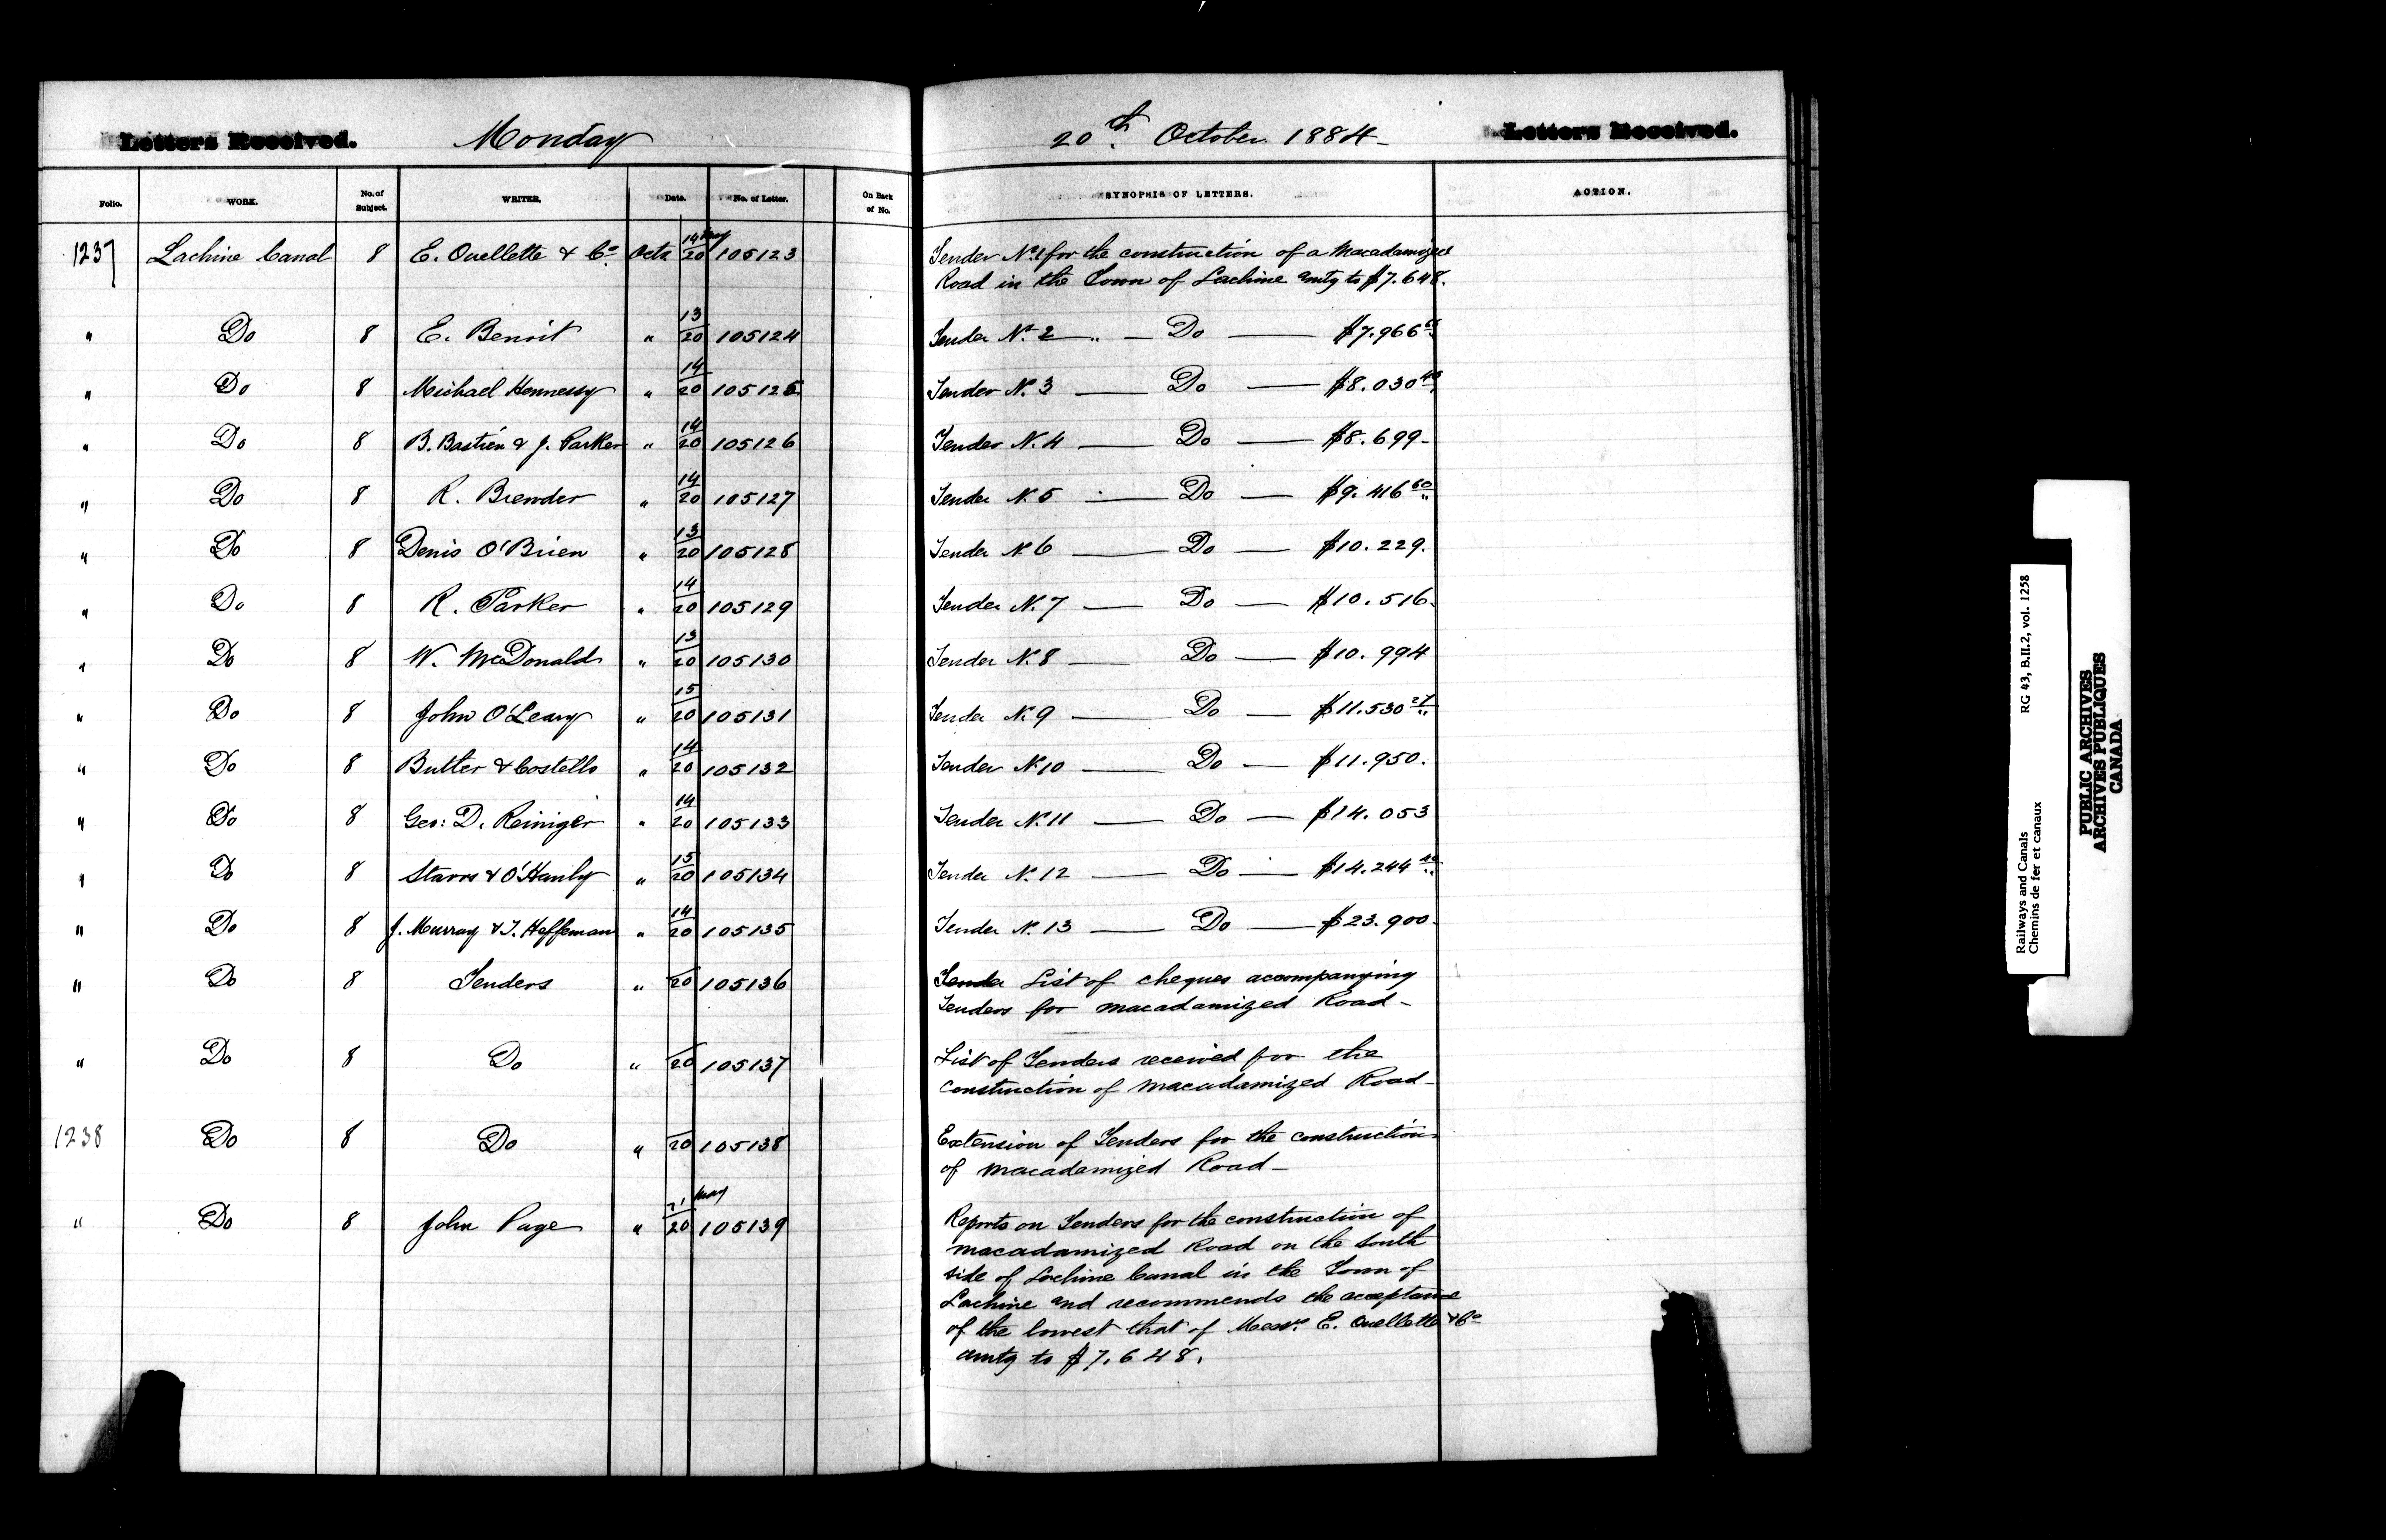 Letters Received. Monday 20th October 1884 - Letters Received.
Folio. WORK. No. of Subject. WRITER. Date. No. of Letter. On Back of No. SYNOPSIS OF LETTERS. ACTION.
1237 Lachine Canal 8 E. Ouellette & Co Octr 14 May/20 105123 Tender No 1 for the construction of a Macadamized
Road in the Town of Lachine amtg to $7.648.
" Do 8 E. Benoit " 13/20 105124 Tender No. 2 — " — Do — $7.966
" Do 8 Michael Hennessy " 14/20 105125 Tender N. 3 — Do — $8.030 40
" Do 8 B. Bastien & J. Parker " 14/20 105126 Tender N. 4 — Do — $8.699-
" Do 8 R. Brender " 14/20 105127 Tender N. 5 — Do — $9.416 60
" Do 8 Denis O'Brien " 13/20 105128 Tender N. 6 — Do — $10.229.
" Do 8 R. Parker " 14/20 105129 Tender N. 7 — Do — $10.516.
" Do 8 W. McDonald " 13/20 105130 Tender N. 8 — Do — $10.994
" Do 8 John O'Leary " 15/20 105131 Tender N. 9 — Do — $11.530 27
" Do 8 Butler & Costello " 14/20 105132 Tender N. 10 — Do — $11.950.
" Do 8 Geo: D. Reiniger " 14/20 105133 Tender N. 11 — Do — $14.053
" Do 8 Starrs & O'Hanly " 15/20 105134 Tender N. 12 — Do — $14.244 40
" Do 8 J. Murray & T. Heffernan " 14/20 105135 Tender N. 13 — Do — $23.900.
" Do 8 Tenders " 20 105136 Tender List of cheques accompanying
Tenders for macadamized Road -
" Do 8 Do " 20 105137 List of Tenders received for the
construction of macadamized Road -
1238 Do 8 Do " 20 105138 Extension of Tenders for the construction
of macadamized Road -
" Do 8 John Page " 21 May/20 105139 Reports on Tenders for the construction of
macadamized Road on the South
side of Lachine Canal in the Town of
Lachine and recommends the acceptance
of the lowest that of Messrs. E. Ouellette & Co
amtg to $7.648.
Railways and Canals RG 43, B.II.2, vol. 1258
Chemins de fer et canaux
PUBLIC ARCHIVES
ARCHIVES PUBLIQUES
CANADA